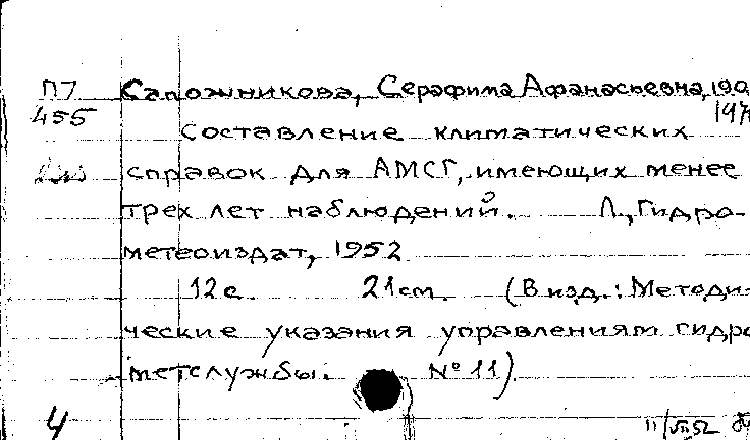 П7 Сапожникова, Серафима Афанасьевна, 190
455 197
Составление климатических
справок для АМСГ, имеющих менее
трех лет наблюдений. Л., Гидро-
метеоиздат, 1952.
12с. 21см. (В изд.: Методи-
ческие указания управлениям гидро
метслужбы. № 11).
4 11/VII52